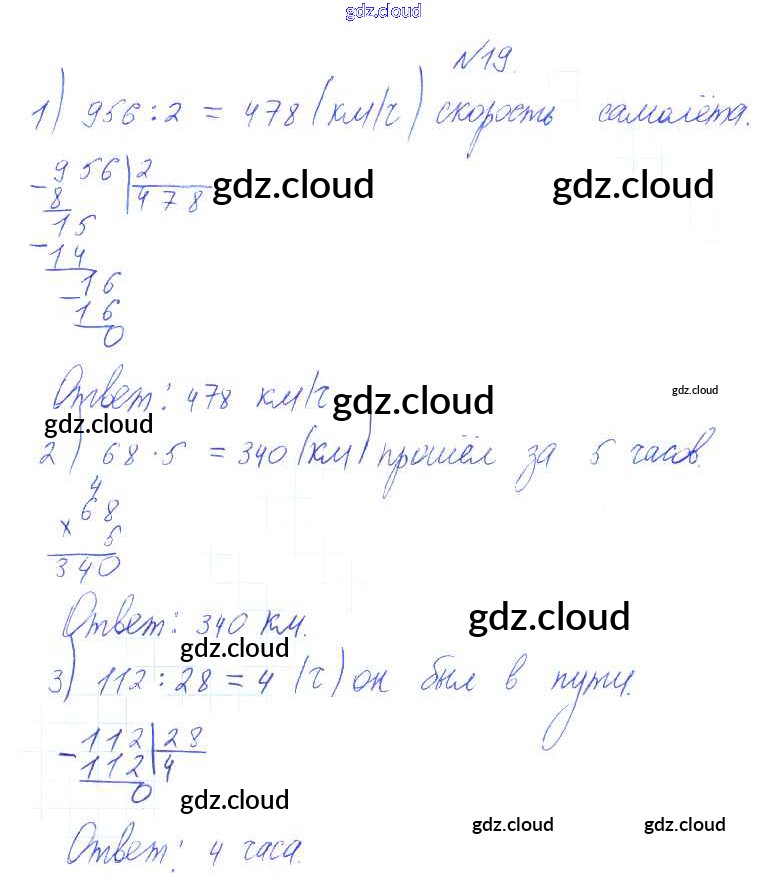 gdz.cloud
№19.
1) 956 : 2 = 478 (км/ч) скорость самолёта.
- 956 | 2
8 | 478 gdz.cloud gdz.cloud
15
- 14
- 16
16
0
Ответ: 478 км/ч gdz.cloud gdz.cloud
gdz.cloud
2) 68 · 5 = 340 (км) прошёл за 5 часов.
4
× 68
5
340
Ответ: 340 км. gdz.cloud
gdz.cloud
3) 112 : 28 = 4 (ч) он был в пути.
- 112 | 28
112 | 4
0
gdz.cloud
gdz.cloud gdz.cloud
Ответ: 4 часа.